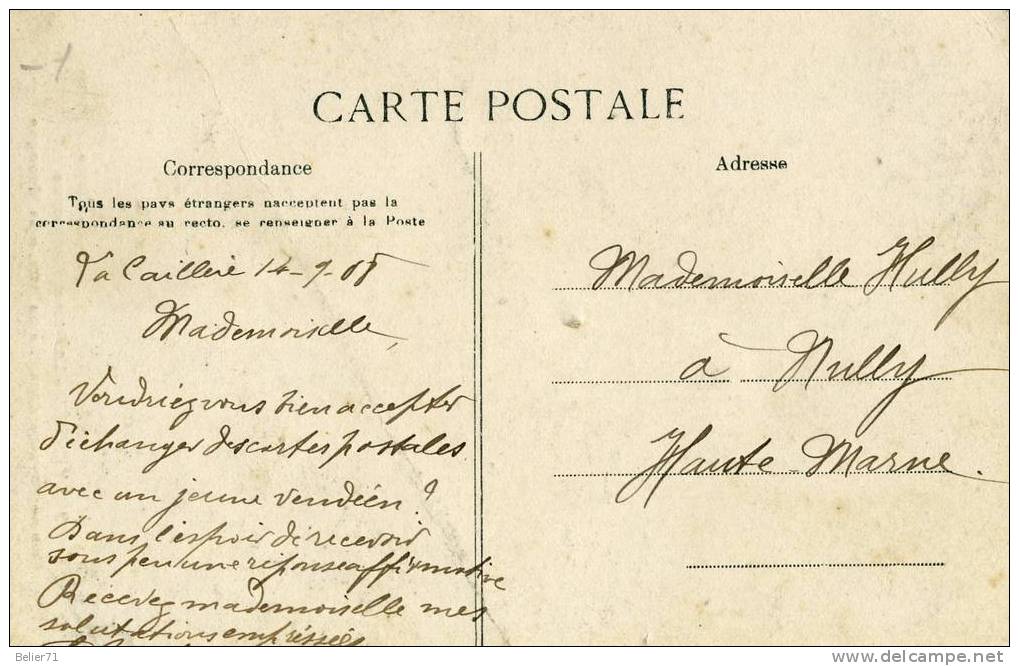 CARTE POSTALE
Correspondance
Adresse
Tous les pays étrangers n'acceptent pas la
correspondance au recto, se renseigner à la Poste
La Caillère 14-9-08
Mademoiselle,
Voudriez vous bien accepter
d'échanger des cartes postales
avec un jeune vendéen ?
Dans l'espoir de recevoir
sous peu une réponse affirmative
Recevez mademoiselle mes
salutations empressées
Mademoiselle Hully
à Nully
Haute Marne.
Belier71
delcampe.net